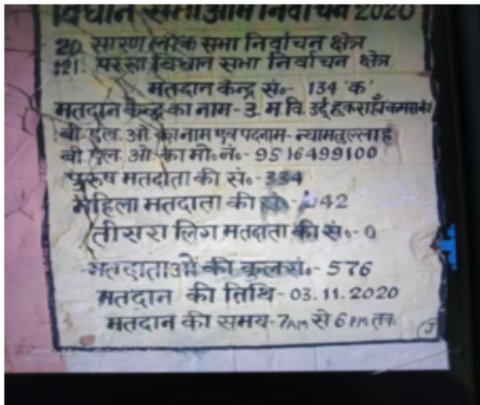 विधान सभा आम निर्वाचन 2020
20 सारण लोक सभा निर्वाचन क्षेत्र
121. परसा विधान सभा निर्वाचन क्षेत्र
मतदान केन्द्र सं॰- 134 'क'
मतदान केन्द्र का नाम- उ म वि उर्दू
बी. एल. ओ का नाम एवं पदनाम- न्यामतुल्लाह
बी. एल. ओ- का मो॰ नं॰- 9516499100
पुरुष मतदाता की सं॰- 334
महिला मतदाता की सं॰- 42
तीसरा लिंग मतदाता की सं॰- 0
मतदाताओं की कुल सं॰- 576
मतदान की तिथि- 03.11.2020
मतदान की समय- 7AM से 6 PM तक